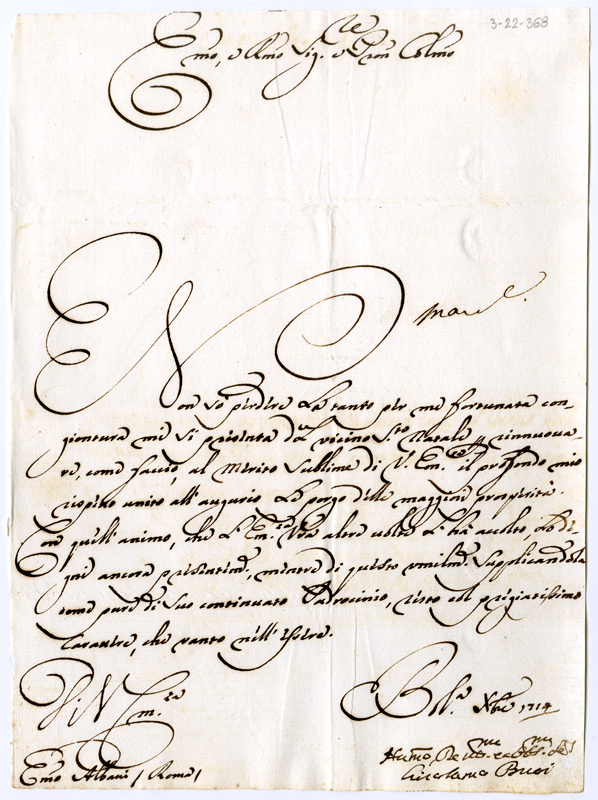 3-22-368
Emo, e Rmo Sig.re e Pron Colmo
Non so perdere la tanto per me fortunata con-
giontura mi si presenta del vicino S.to Natale, rinnuova-
re, come faccio, al Merito Sublime di V. Em.za il profondo mio
rispetto unito all'augurio Le porgo delle maggiori prosperità.
Con quell'animo, che L'Em.za Vra altre volte L'hà accolto, Lo de-
gni ancora presentem.e, mentre di questo umilm.e Supplicandola
come pure di Suo continuato Padrocinio, resto col pregiatissimo
Carattere, che vanto nell'essere.
Di V Em.za
Bol.a Xbre 1714
Emo Albani / Roma /
Humo, Devmo et Obbmo
Girolamo Busi